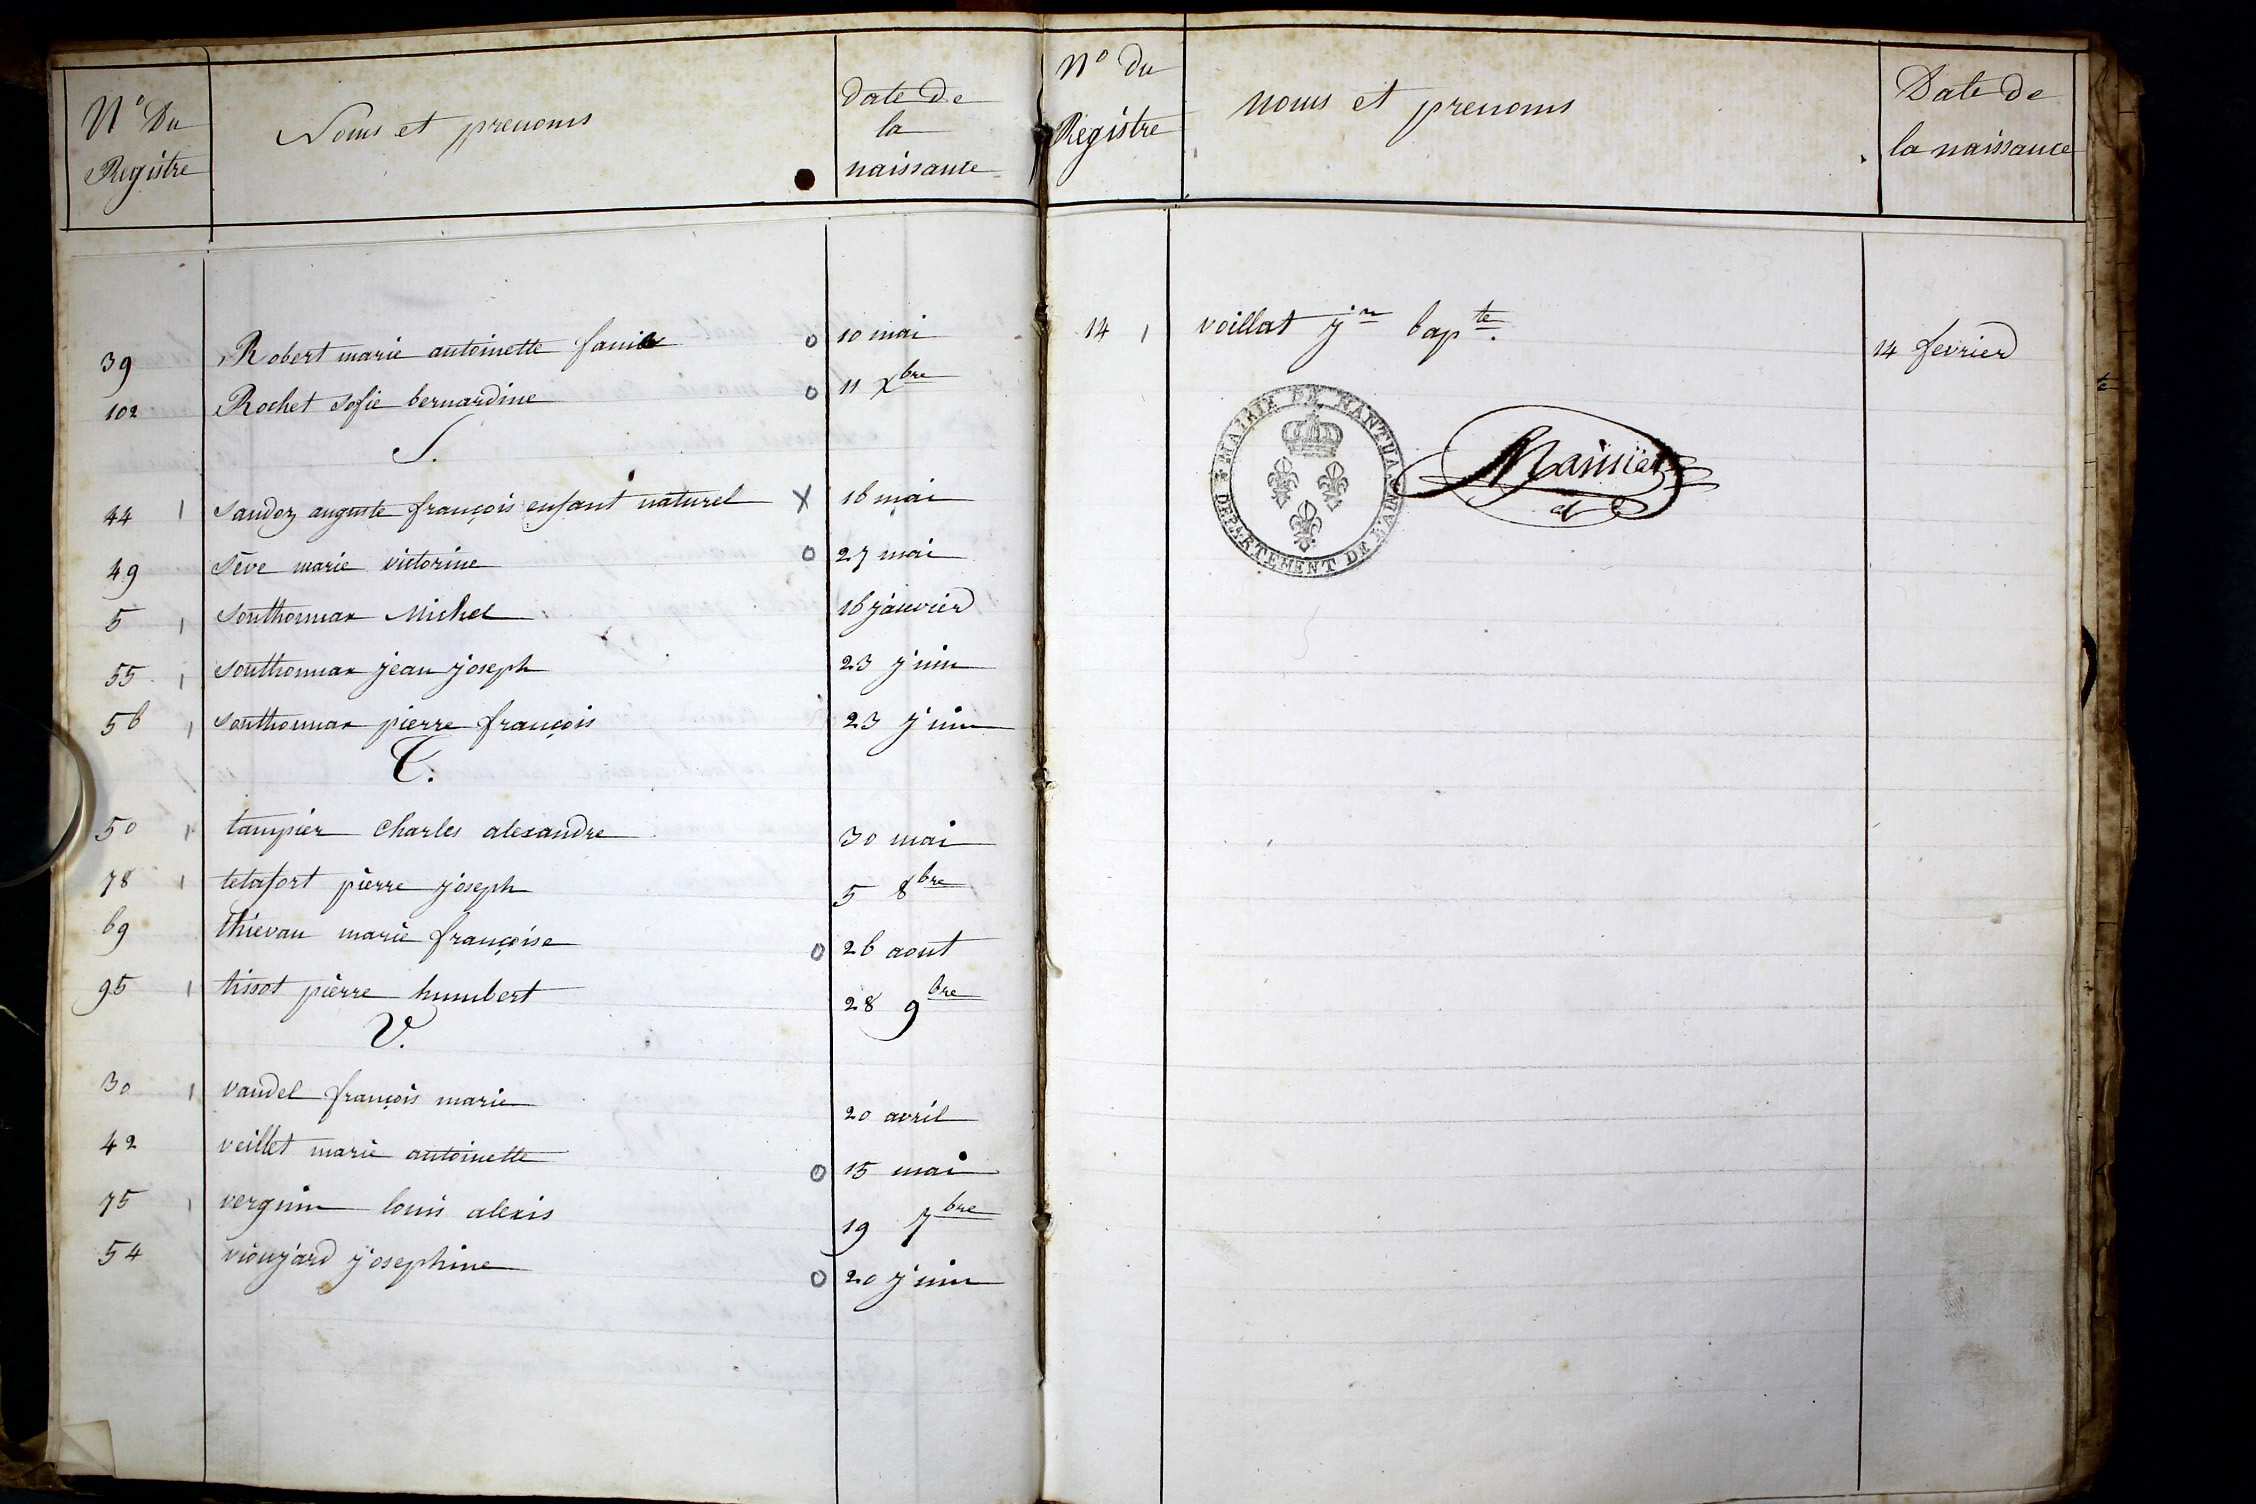 N° Du
Registre
Noms et prenoms
Date De
la
naissance
39 Robert marie antoinette fanie o 10 mai
102 Rochet Sofie bernardine o 11 Xbre
S.
44 1 Sandoz auguste françois enfant naturel X 16 mai
49 Sève marie victorine o 27 mai
5 1 Southonnax Michel 16 janvier
55 1 Southonnax jean joseph 23 juin
56 1 Southonnax pierre françois 23 juin
T.
50 1 tampier Charles alexandre 30 mai
78 1 tetafort pierre joseph 5 8bre
69 thievan marie françoise o 26 aout
95 1 tissot pierre humbert 28 9bre
V.
30 1 vandel françois marie 20 avril
42 veillet marie antoinette o 15 mai
75 1 verguin louis alexis 19 7bre
54 vioujard josephine o 20 juin
N° Du
Registre
Noms et prenoms
Date de
la naissance
14 1 voillat jn bapte. 14 fevrier
MAIRIE DE NANTUA
DÉPARTEMENT DE L'AIN